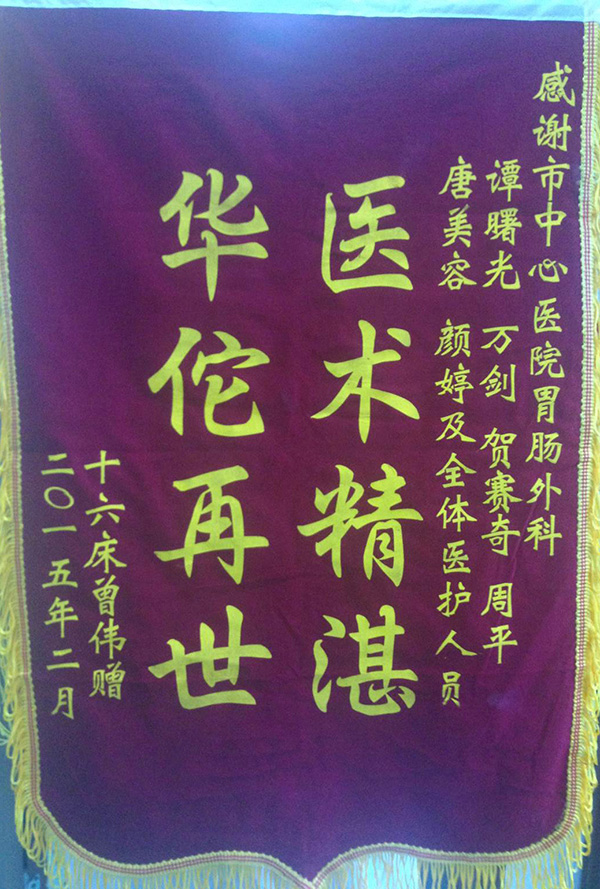 感谢市中心医院胃肠外科
谭曙光 万剑 贺赛奇 周平
唐美容 颜婷及全体医护人员
医术精湛
华佗再世
十六床曾伟赠
二〇一五年二月